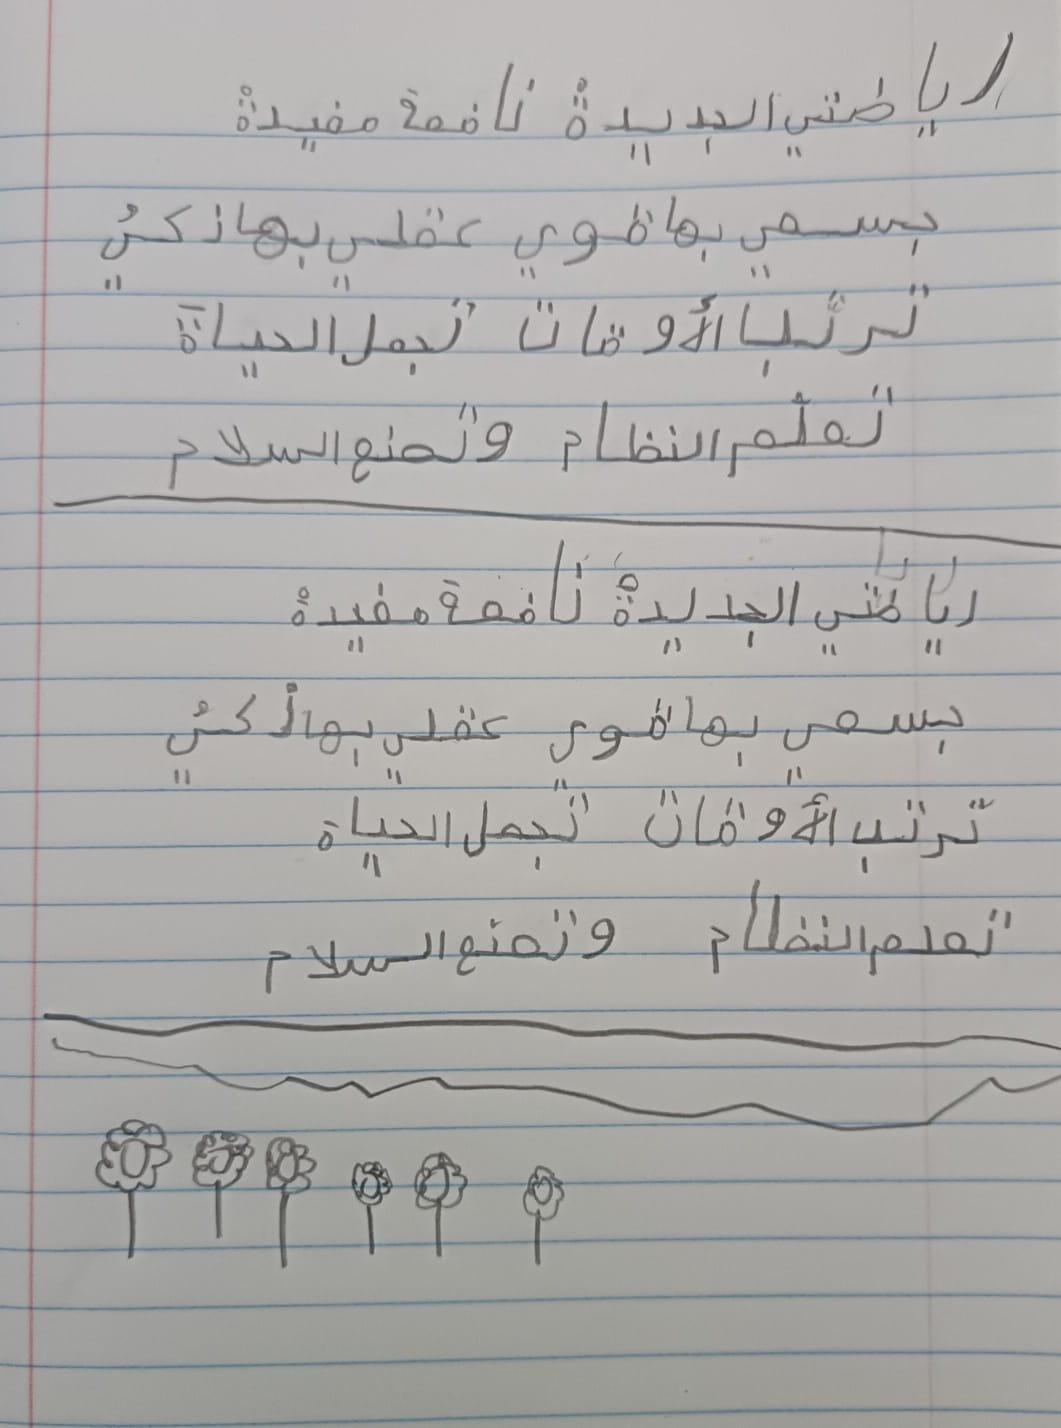 رياضتي الجديدة نافعة مفيدة
جسمي بها قوي عقلي بها زكي
ترتب الأوقات تجمل الحياة
تعلم النظام وتصنع السلام
رياضتي الجديدة نافعة مفيدة
جسمي بها قوي عقلي بها زكي
ترتب الأوقات تجمل الحياة
تعلم النظام وتصنع السلام